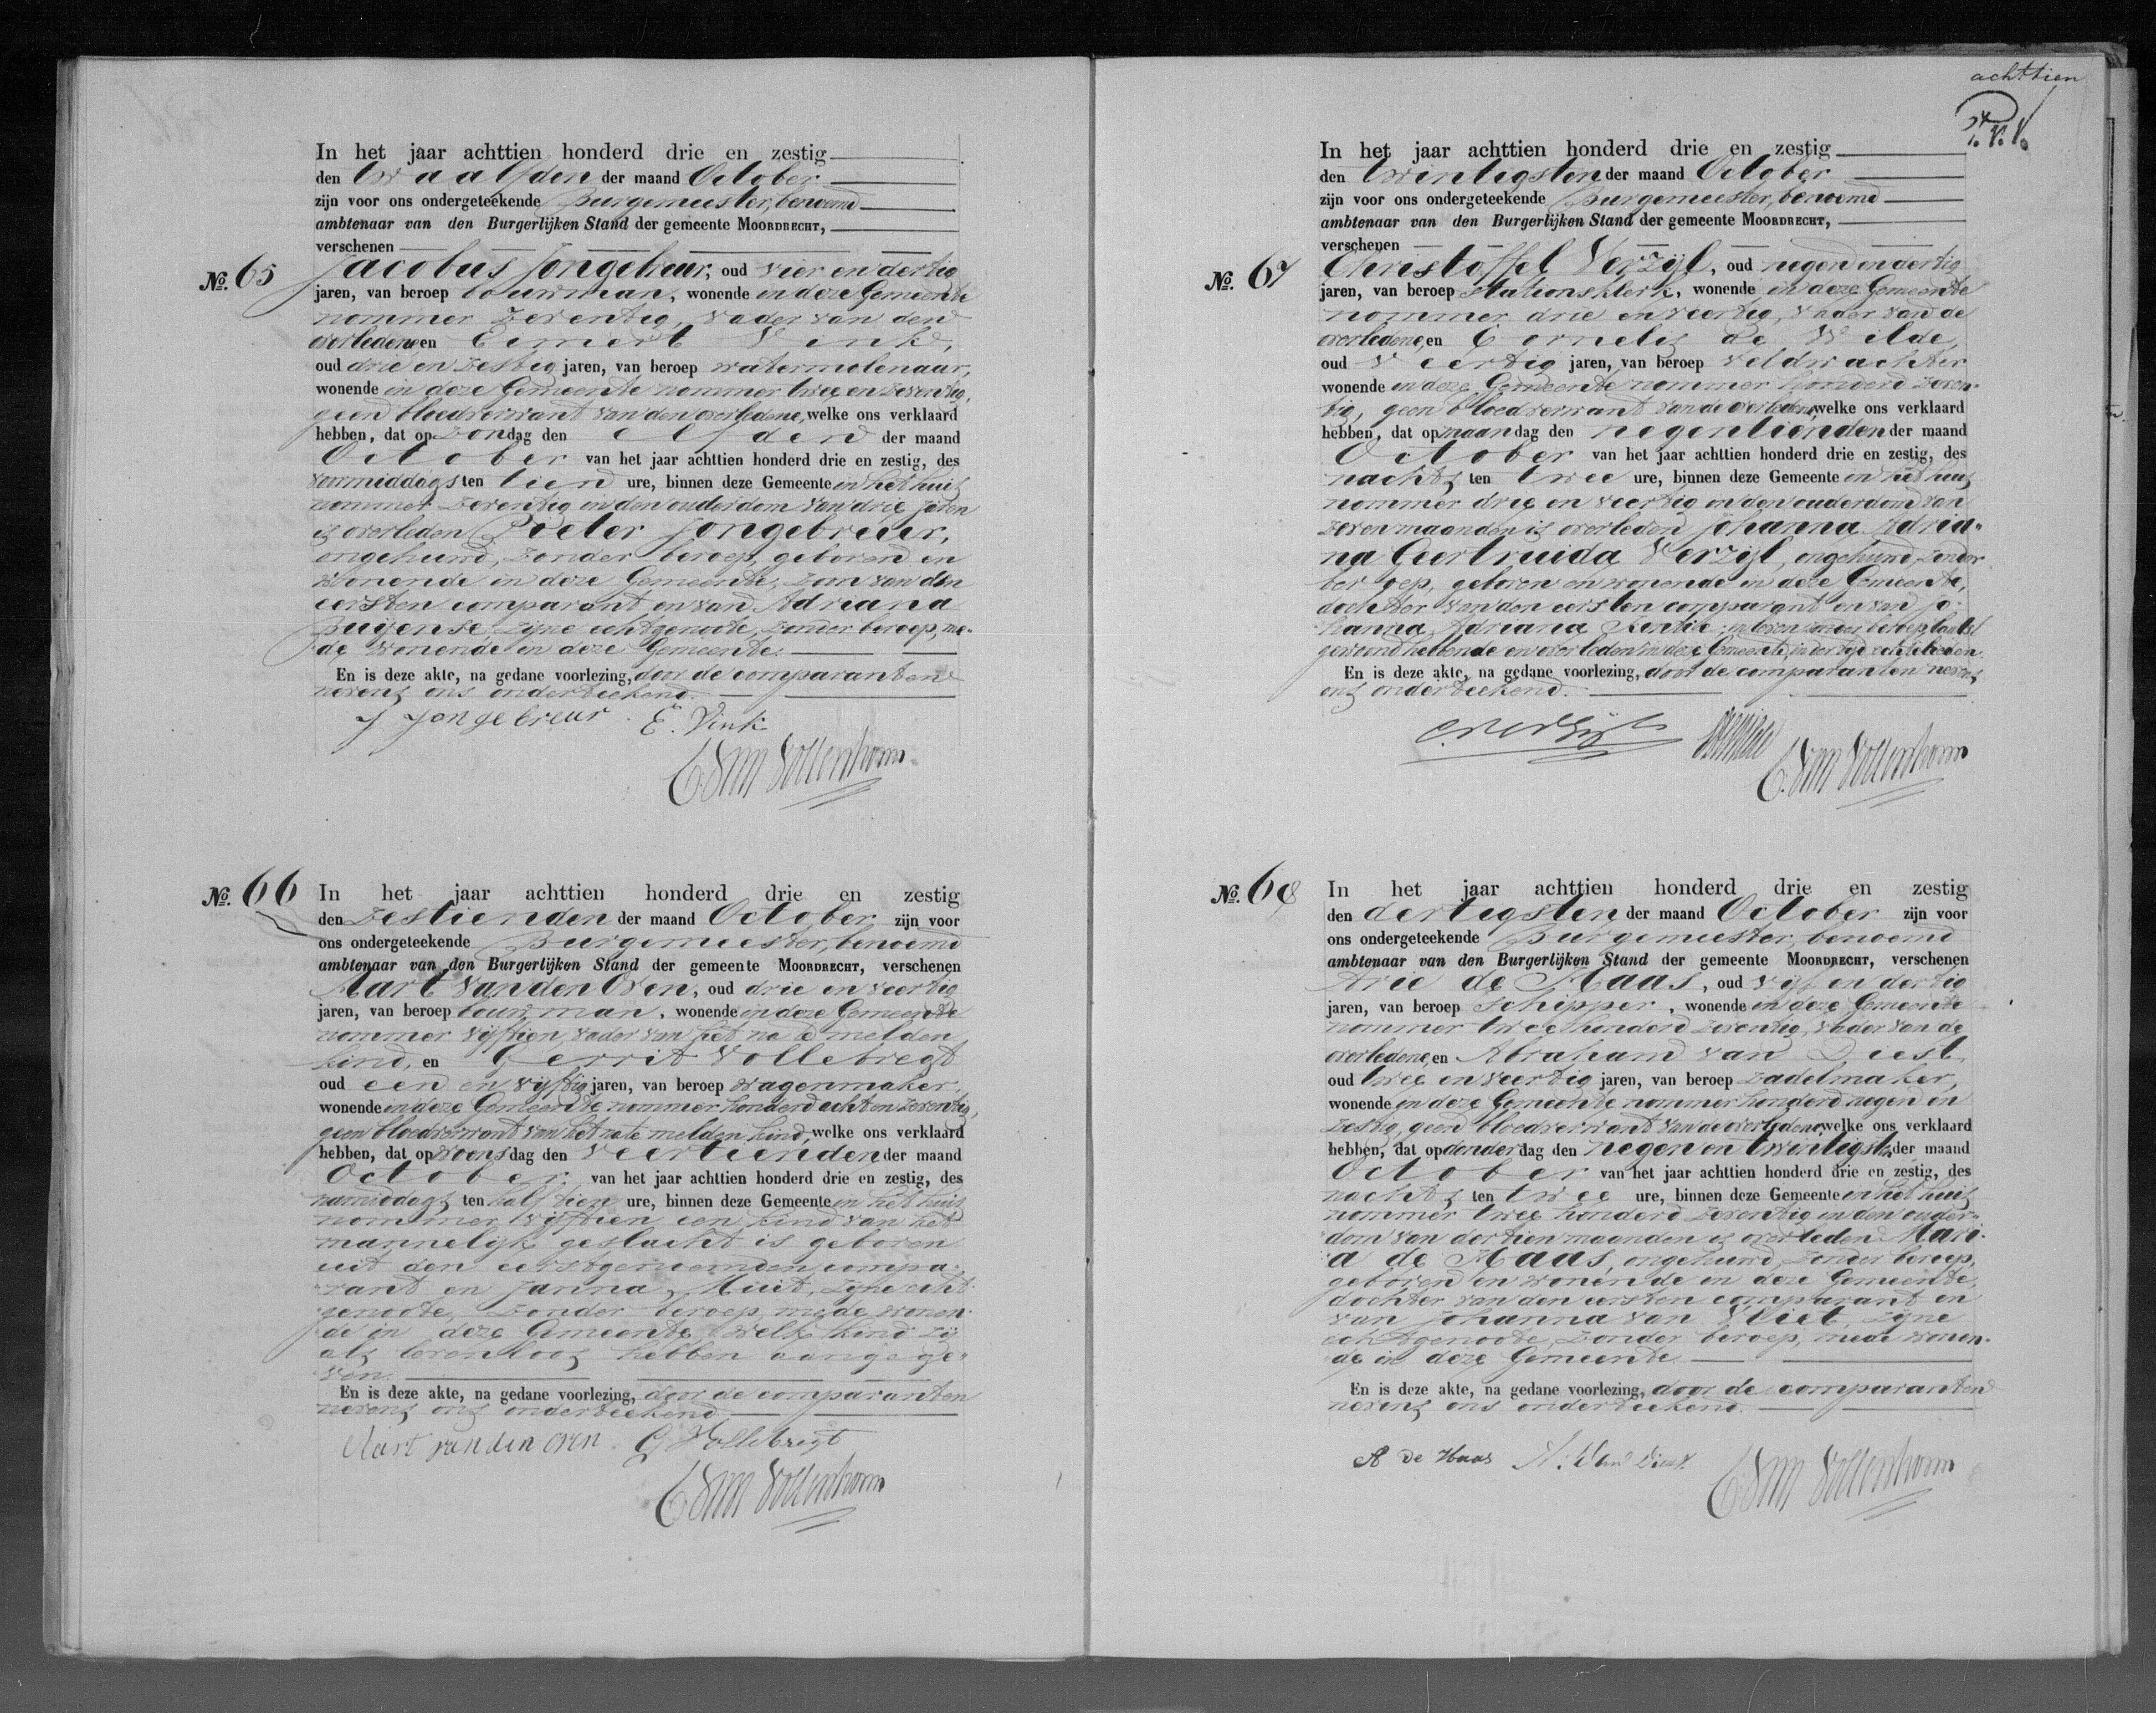 In het jaar achttien honderd drie en zestig
den twaalfden der maand October
zijn voor ons ondergeteekende Burgemeester, benoemd
ambtenaar van den Burgerlijken Stand der gemeente MOORDRECHT,
verschenen
No. 65 Jacobus Jongebreur, oud vier en dertig
jaren, van beroep bouwman, wonende in deze Gemeente
nommer zeventig, vader van den
overledene, en Eimert Vink,
oud drie en zestig jaren, van beroep watermolenaar,
wonende in deze Gemeente nommer twee en zeventig,
geen bloedverwant van den overledene, welke ons verklaard
hebben, dat op zondag den elfden der maand
October van het jaar achttien honderd drie en zestig, des
voormiddags ten tien ure, binnen deze Gemeente in het huis
nommer zeventig in den ouderdom van drie jaren
is overleden Pieter Jongebreur,
ongehuwd, zonder beroep, geboren en
wonende in deze Gemeente, zoon van den
eersten comparant en van Adriana
Buijense, zijne echtgenoote, zonder beroep, me-
de wonende in deze Gemeente.
En is deze akte, na gedane voorlezing, door de comparanten
nevens ons onderteekend.
J Jongebreur. E. Vink
C. van Vollenhoven
No. 66 In het jaar achttien honderd drie en zestig
den zestienden der maand October zijn voor
ons ondergeteekende Burgemeester, benoemd
ambtenaar van den Burgerlijken Stand der gemeente MOORDRECHT, verschenen
Aart van den Oven, oud drie en veertig
jaren, van beroep bouwman, wonende in deze Gemeente
nommer vijftien, vader van het na te melden
kind, en Gerrit Vollebregt
oud een en vijftig jaren, van beroep wagenmaker,
wonende in deze Gemeente nommer honderd acht en zeventig,
geen bloedverwant van het na te melden kind, welke ons verklaard
hebben, dat op woensdag den veertienden der maand
October van het jaar achttien honderd drie en zestig, des
namiddags ten half tien ure, binnen deze Gemeente in het huis
nommer vijftien een kind van het
mannelijk geslacht is geboren
uit den eerstgenoemden compa-
rant en Janna Muit, zijne echt-
genoote, zonder beroep, mede wonen-
de in deze Gemeente, welk kind zij
als levenloos hebben aangege-
ven.
En is deze akte, na gedane voorlezing, door de comparanten
nevens ons onderteekend.
Aart van den oven. G Vollebregt
C. van Vollenhoven
achttien
In het jaar achttien honderd drie en zestig
den twintigsten der maand October
zijn voor ons ondergeteekende Burgemeester, benoemd
ambtenaar van den Burgerlijken Stand der gemeente MOORDRECHT,
verschenen
No. 67 Christoffel Verzijl, oud negen en dertig
jaren, van beroep stationsklerk, wonende in deze Gemeente
nommer drie en veertig, vader van de
overledene, en Cornelis de Wilde,
oud veertig jaren, van beroep veldwachter
wonende in deze Gemeente nommer honderd zeven-
tig, geen bloedverwant van de overledene, welke ons verklaard
hebben, dat op maandag den negentienden der maand
October van het jaar achttien honderd drie en zestig, des
nachts ten twee ure, binnen deze Gemeente in het huis
nommer drie en veertig in den ouderdom van
zeven maanden is overleden Johanna Adria-
na Geertruida Verzijl, ongehuwd, zonder
beroep, geboren en wonende in deze Gemeente,
dochter van den eersten comparant en van Jo-
hanna Adriana Kentie, in leven zonder beroep, laatst
gewoond hebbende en overleden in deze Gemeente, in der tijd echtelieden.
En is deze akte, na gedane voorlezing, door de comparanten nevens
ons onderteekend.
C. Verzijl
C. van Vollenhoven
No. 68 In het jaar achttien honderd drie en zestig
den dertigsten der maand October zijn voor
ons ondergeteekende Burgemeester, benoemd
ambtenaar van den Burgerlijken Stand der gemeente MOORDRECHT, verschenen
Arie de Haas, oud vijf en dertig
jaren, van beroep schipper, wonende in deze Gemeente
nommer twee honderd zeventig, vader van de
overledene, en Abraham van Diest,
oud twee en veertig jaren, van beroep zadelmaker,
wonende in deze Gemeente nommer honderd negen en
zestig, geen bloedverwant van de overledene, welke ons verklaard
hebben, dat op donderdag den negen en twintigsten der maand
October van het jaar achttien honderd drie en zestig, des
nachts ten twee ure, binnen deze Gemeente in het huis
nommer twee honderd zeventig in den ouder-
dom van dertien maanden is overleden Mari-
a de Haas, ongehuwd, zonder beroep,
geboren en wonende in deze Gemeente,
dochter van den eersten comparant en
van Johanna van Vliet, zijne
echtgenoote, zonder beroep, mede wonen-
de in deze Gemeente.
En is deze akte, na gedane voorlezing, door de comparanten
nevens ons onderteekend.
A de Haas A. van Diest.
C. van Vollenhoven